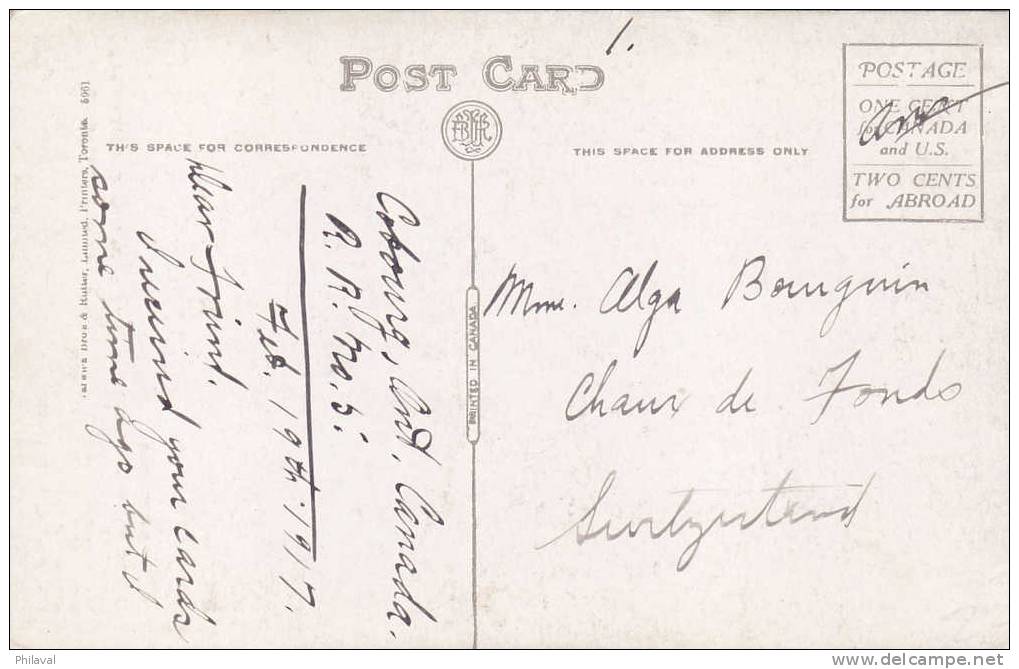 1.
POST CARD
THIS SPACE FOR CORRESPONDENCE
Cobourg, Ont. Canada.
R. R. No. 5.
Feb. 19th. 1917.
Dear Friend.
I received your cards
some time ago but I
Limited, Printers, Toronto. 5961
PRINTED IN CANADA
THIS SPACE FOR ADDRESS ONLY
POSTAGE
ONE CENT
for CANADA
and U.S.
TWO CENTS
for ABROAD
Mme. Alga Bourguin
Chaux de Fonds
Switzerland
Philaval
www.delcampe.net